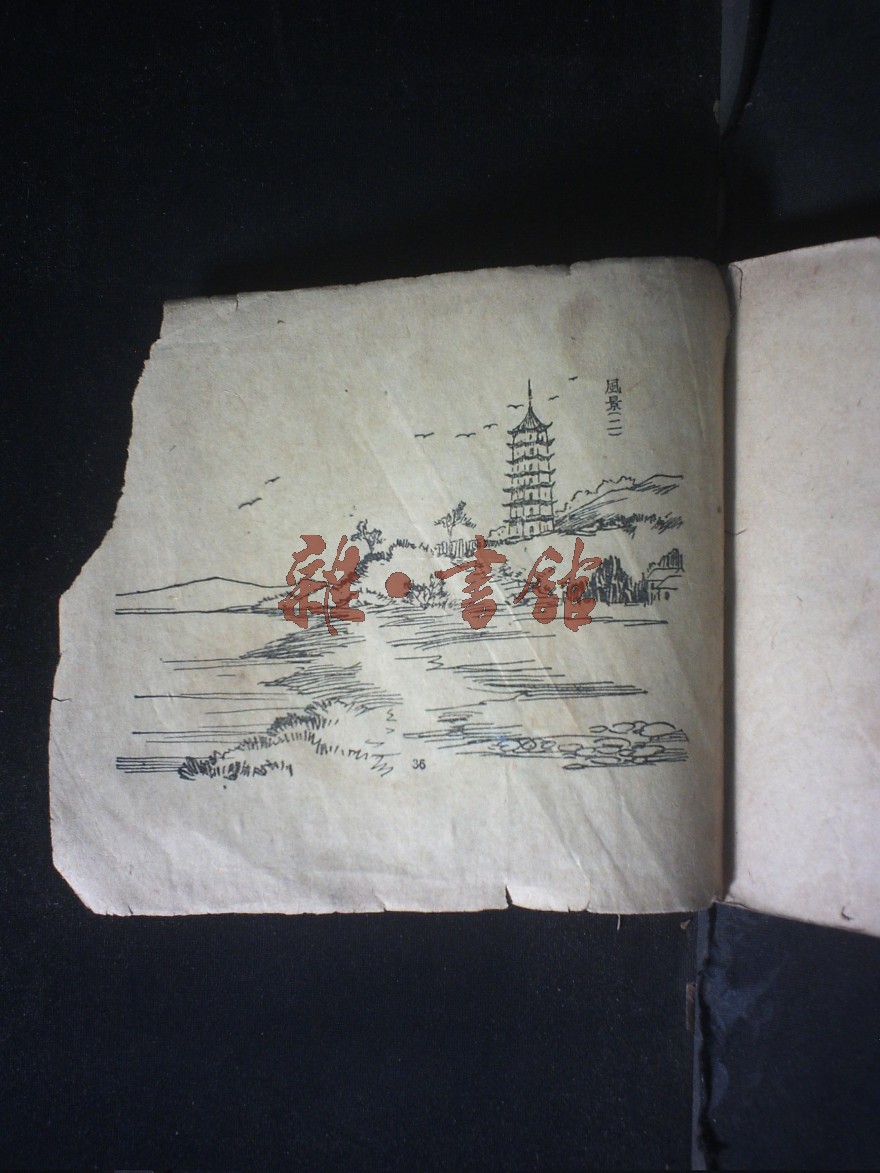 風景(二)
雜·書館
36